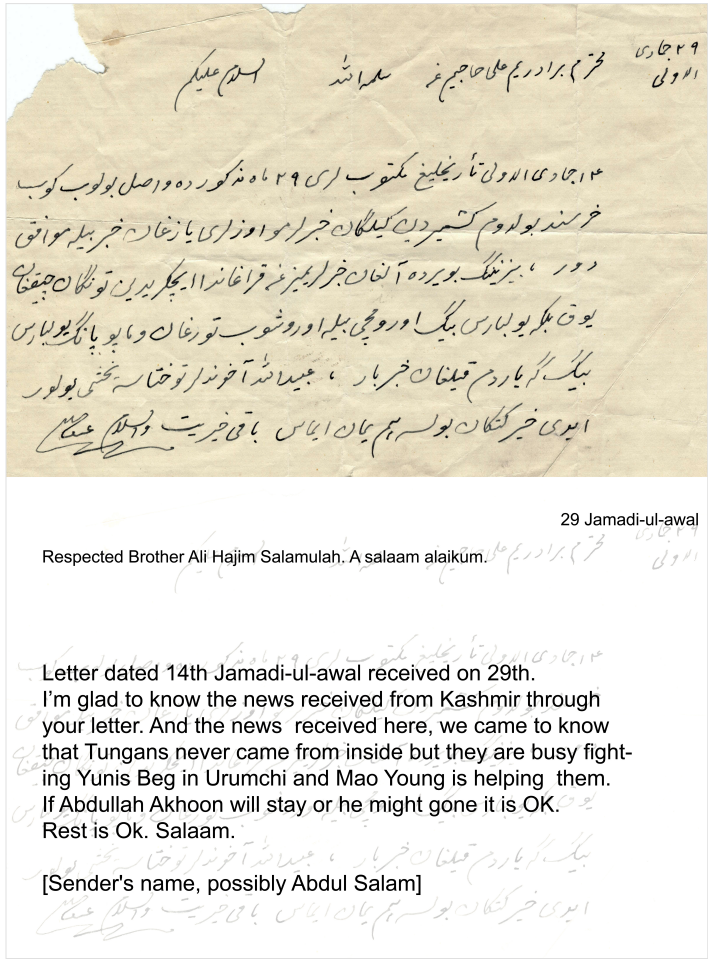 ۲۹ جمادی
الاولی
محترم برادریم علی حاجیم غه سلمه الله السلام علیکم
۱۴ جمادی الاولی تأریخلیغ مکتوب لری ۲۹ ماه مذکور ده واصل بولوب کوب
خرسند بولدوم کشمیردین کیلکان خبرلر اوزلری یازغان خبر بیله موافق
دور ، بیزننگ بویرده آلغان خبرلریمیزغه قراغاندا ایچکریدین تونکان چیققان
یوق بلکه یولبارس بیگ اورومچی بیله اوروشوب تورغان یولبارس
بیگ که یاردم قیلغان خبر بار ، عبدالله آخوندلر توختاسه یخشی بولور
ایدی خیر کتکان بولسه هم یمان ایماس باقی خیریت والسلام
29 Jamadi-ul-awal
Respected Brother Ali Hajim Salamulah. A salaam alaikum.
Letter dated 14th Jamadi-ul-awal received on 29th.
I’m glad to know the news received from Kashmir through
your letter. And the news received here, we came to know
that Tungans never came from inside but they are busy fight-
ing Yunis Beg in Urumchi and Mao Young is helping them.
If Abdullah Akhoon will stay or he might gone it is OK.
Rest is Ok. Salaam.
[Sender's name, possibly Abdul Salam]